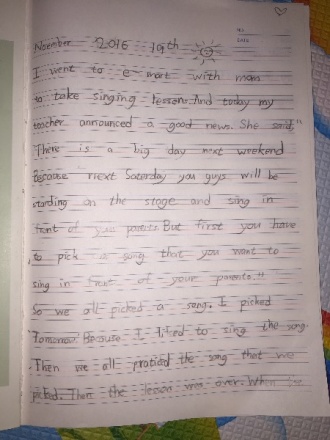 Nocember 2016 19th
I went to e-mart with mom
to take singing lesson. And today my
teacher announced a good news. She said,"
There is a big day next weekend
Because next Saterday you guys will be
standing on the stage and sing in
front of your parents. But first you have
to pick a song that you want to
sing in front of your parents."
So we all picked a song. I picked
Tomorrow. Because I liked to sing the song.
Then we all the song that we
picked. Then the lesson was over. When